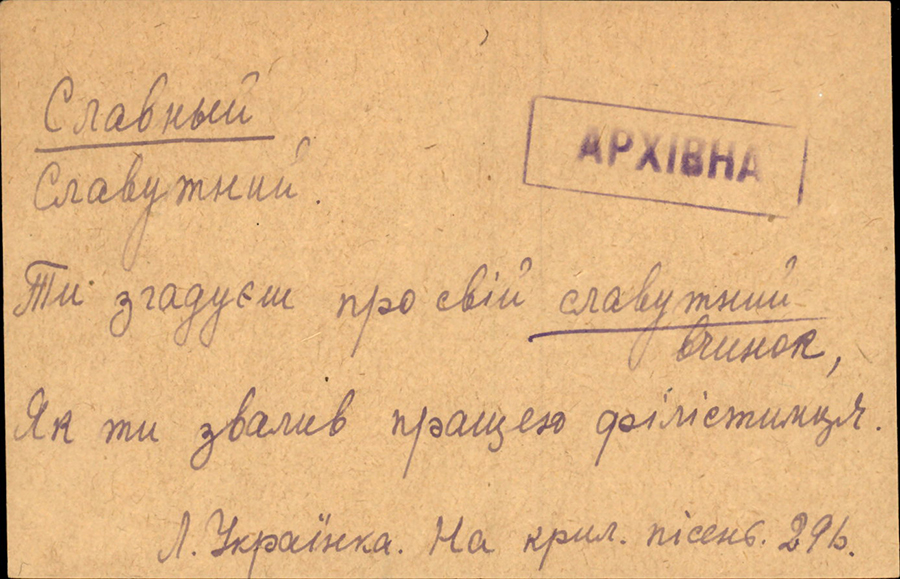 Славный
АРХІВНА
Славутний.
Ти згадуєш про свій славутний
вчинок,
Як ти звалив пращею філістимця.
Л. Українка. На крил. пісень. 29b.